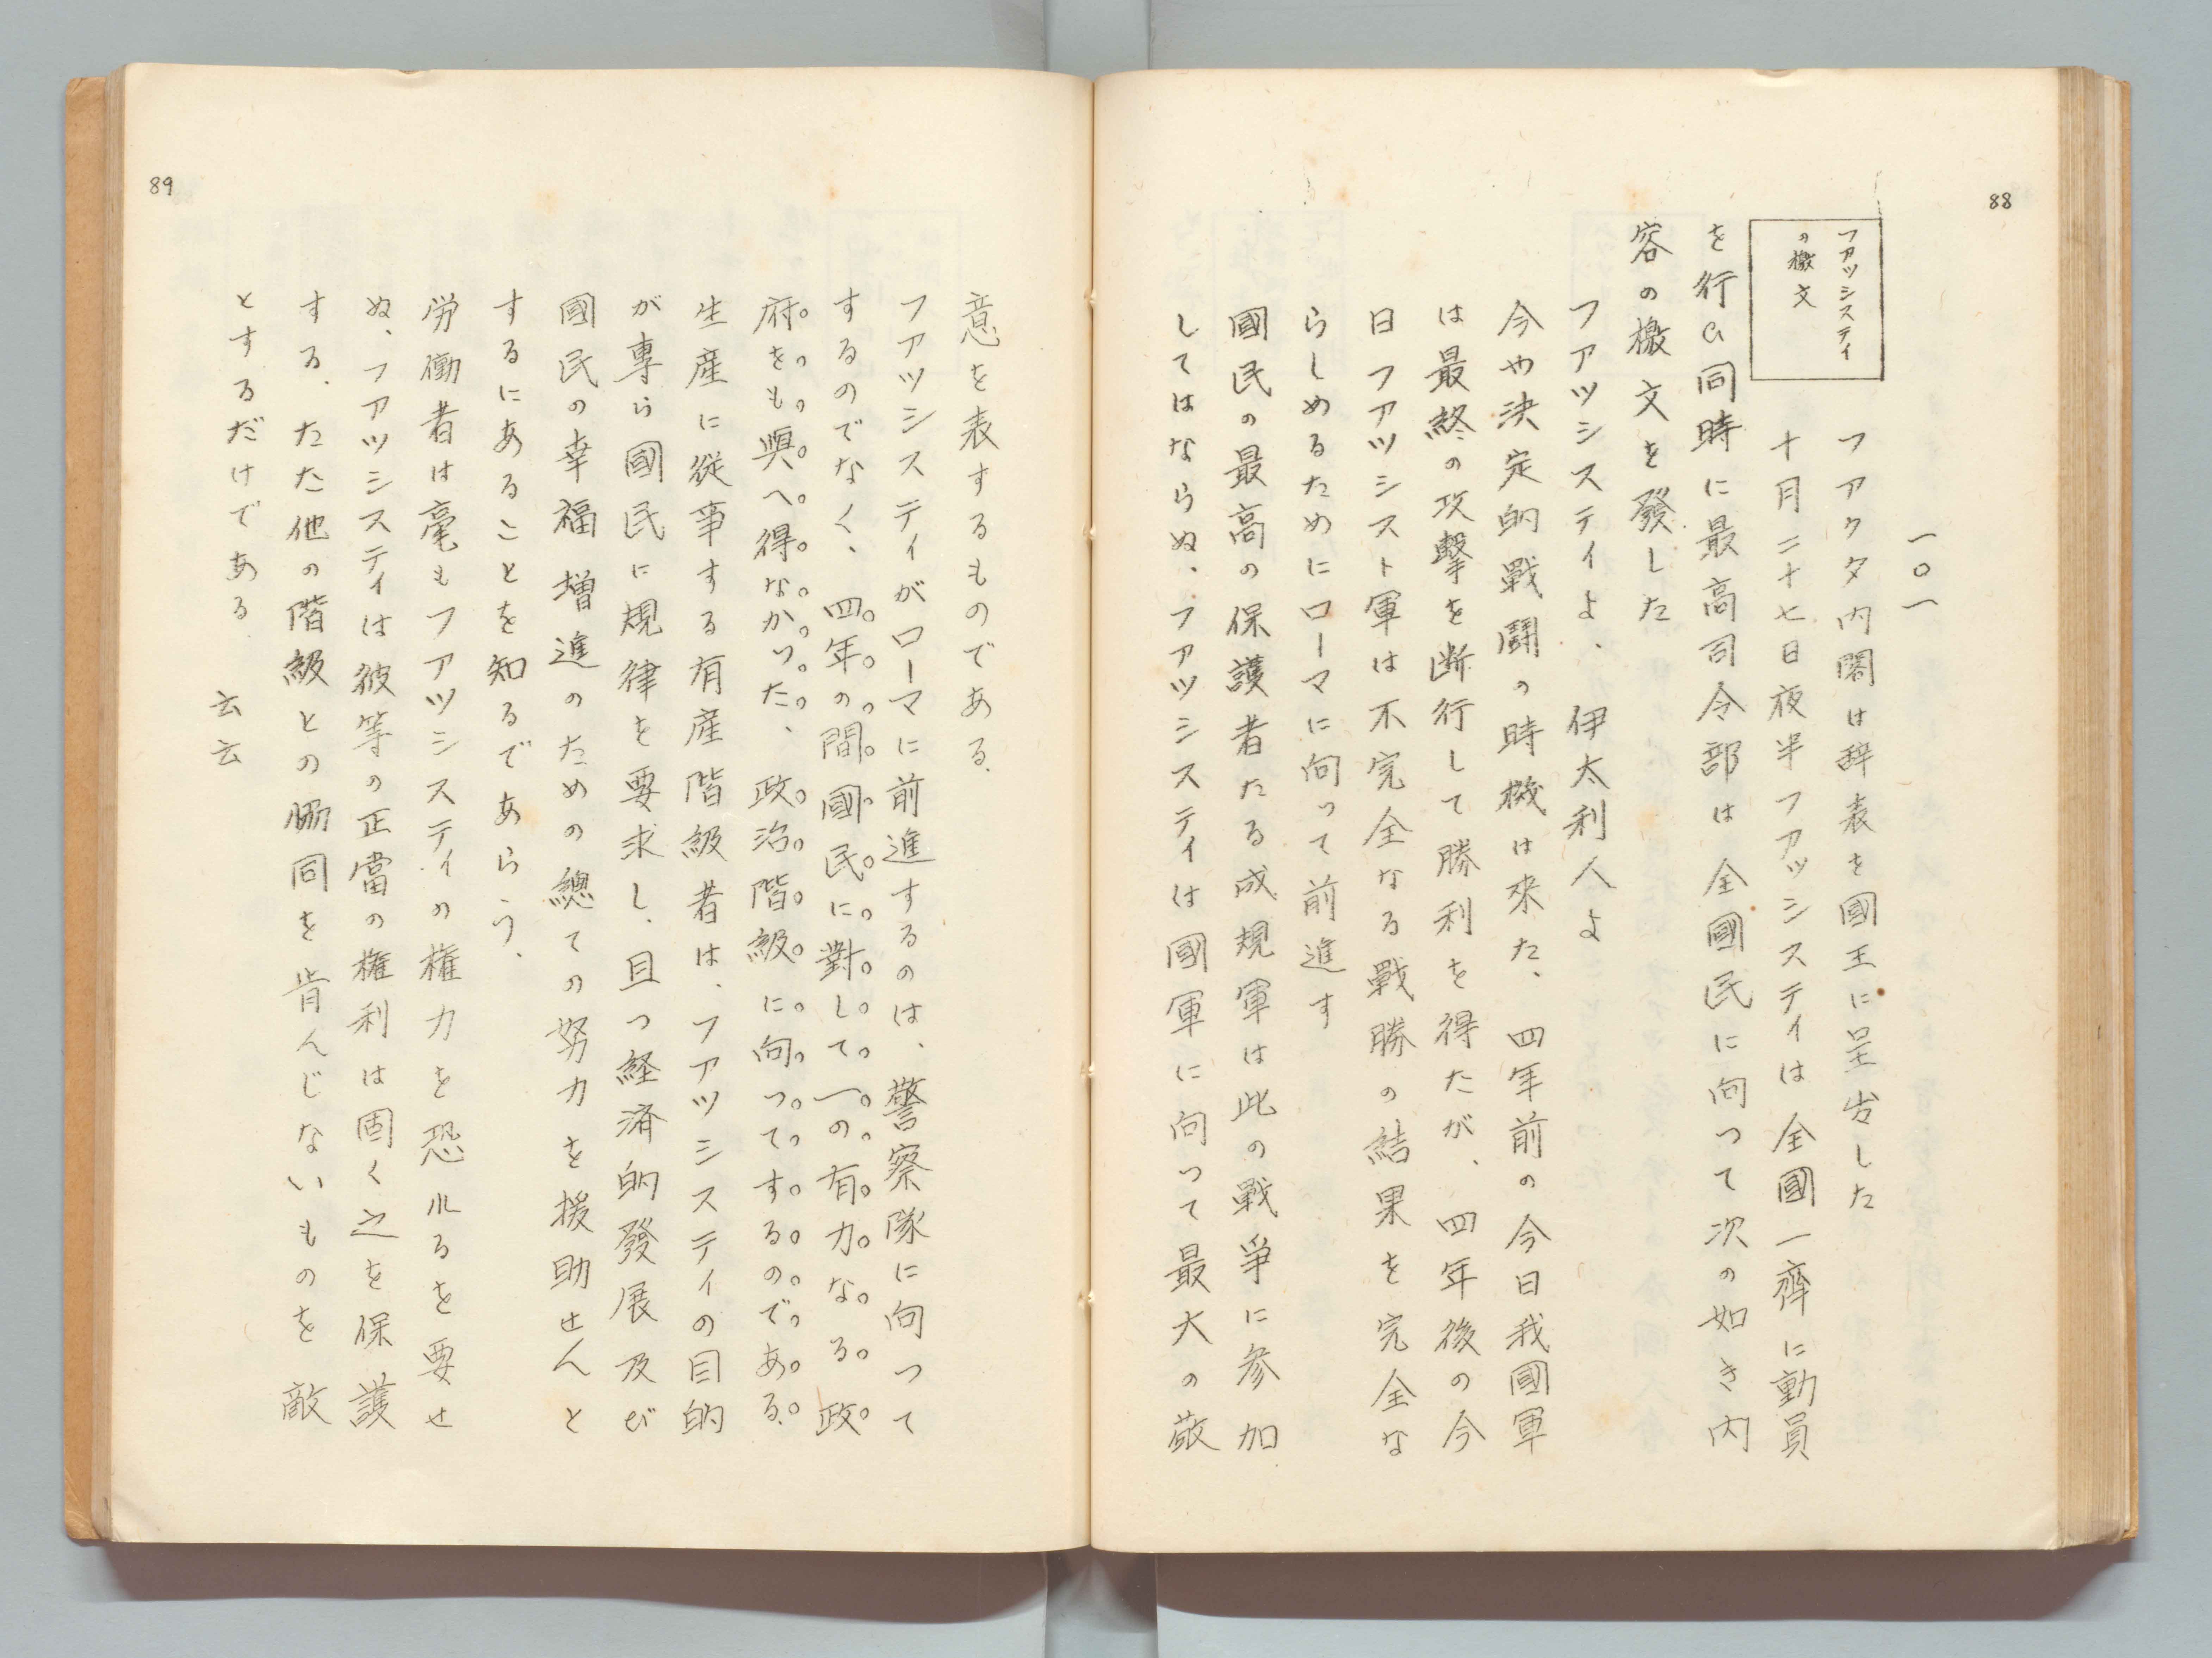 88
一〇一
フアツシスティ
の檄文
フアクタ内閣は辞表を國王に呈出した
十月二十七日夜半フアッシスティは全國一齊に動員
を行ひ同時に最高司令部は全國民に向つて次の如き内
容の檄文を發した
フアツシスティよ、伊太利人よ
今や決定的戰鬪の時機は来た、四年前の今日我國軍
は最終の攻撃を断行して勝利を得たが、四年後の今
日フアツシスト軍は不完全なる戰勝の結果を完全な
らしめるためにローマに向って前進す
國民の最高の保護者たる成規軍は此の戰爭に参加
してはならぬ、フアツシスティは國軍に向って最大の敬
89
意を表するものである、
フアツシスティがローマに前進するのは、警察隊に向って
するのでなく、四年の間國民に對して一の有力なる政
府をも與へ得なかつた、政治階級に向つてするのである、
生産に従事する有産階級者は、フアツシスティの目的
が專ら國民に規律を要求し、且つ経済的發展及び
國民の幸福増進のための總ての努力を援助せんと
するにあることを知るであらう、
労働者は毫もフアツシスティの権力を恐れるを要せ
ぬ、フアツシスティは彼等の正當の権利は固く之を保護
する、たた他の階級との協同を肯んじないものを敵
とするだけである 云云